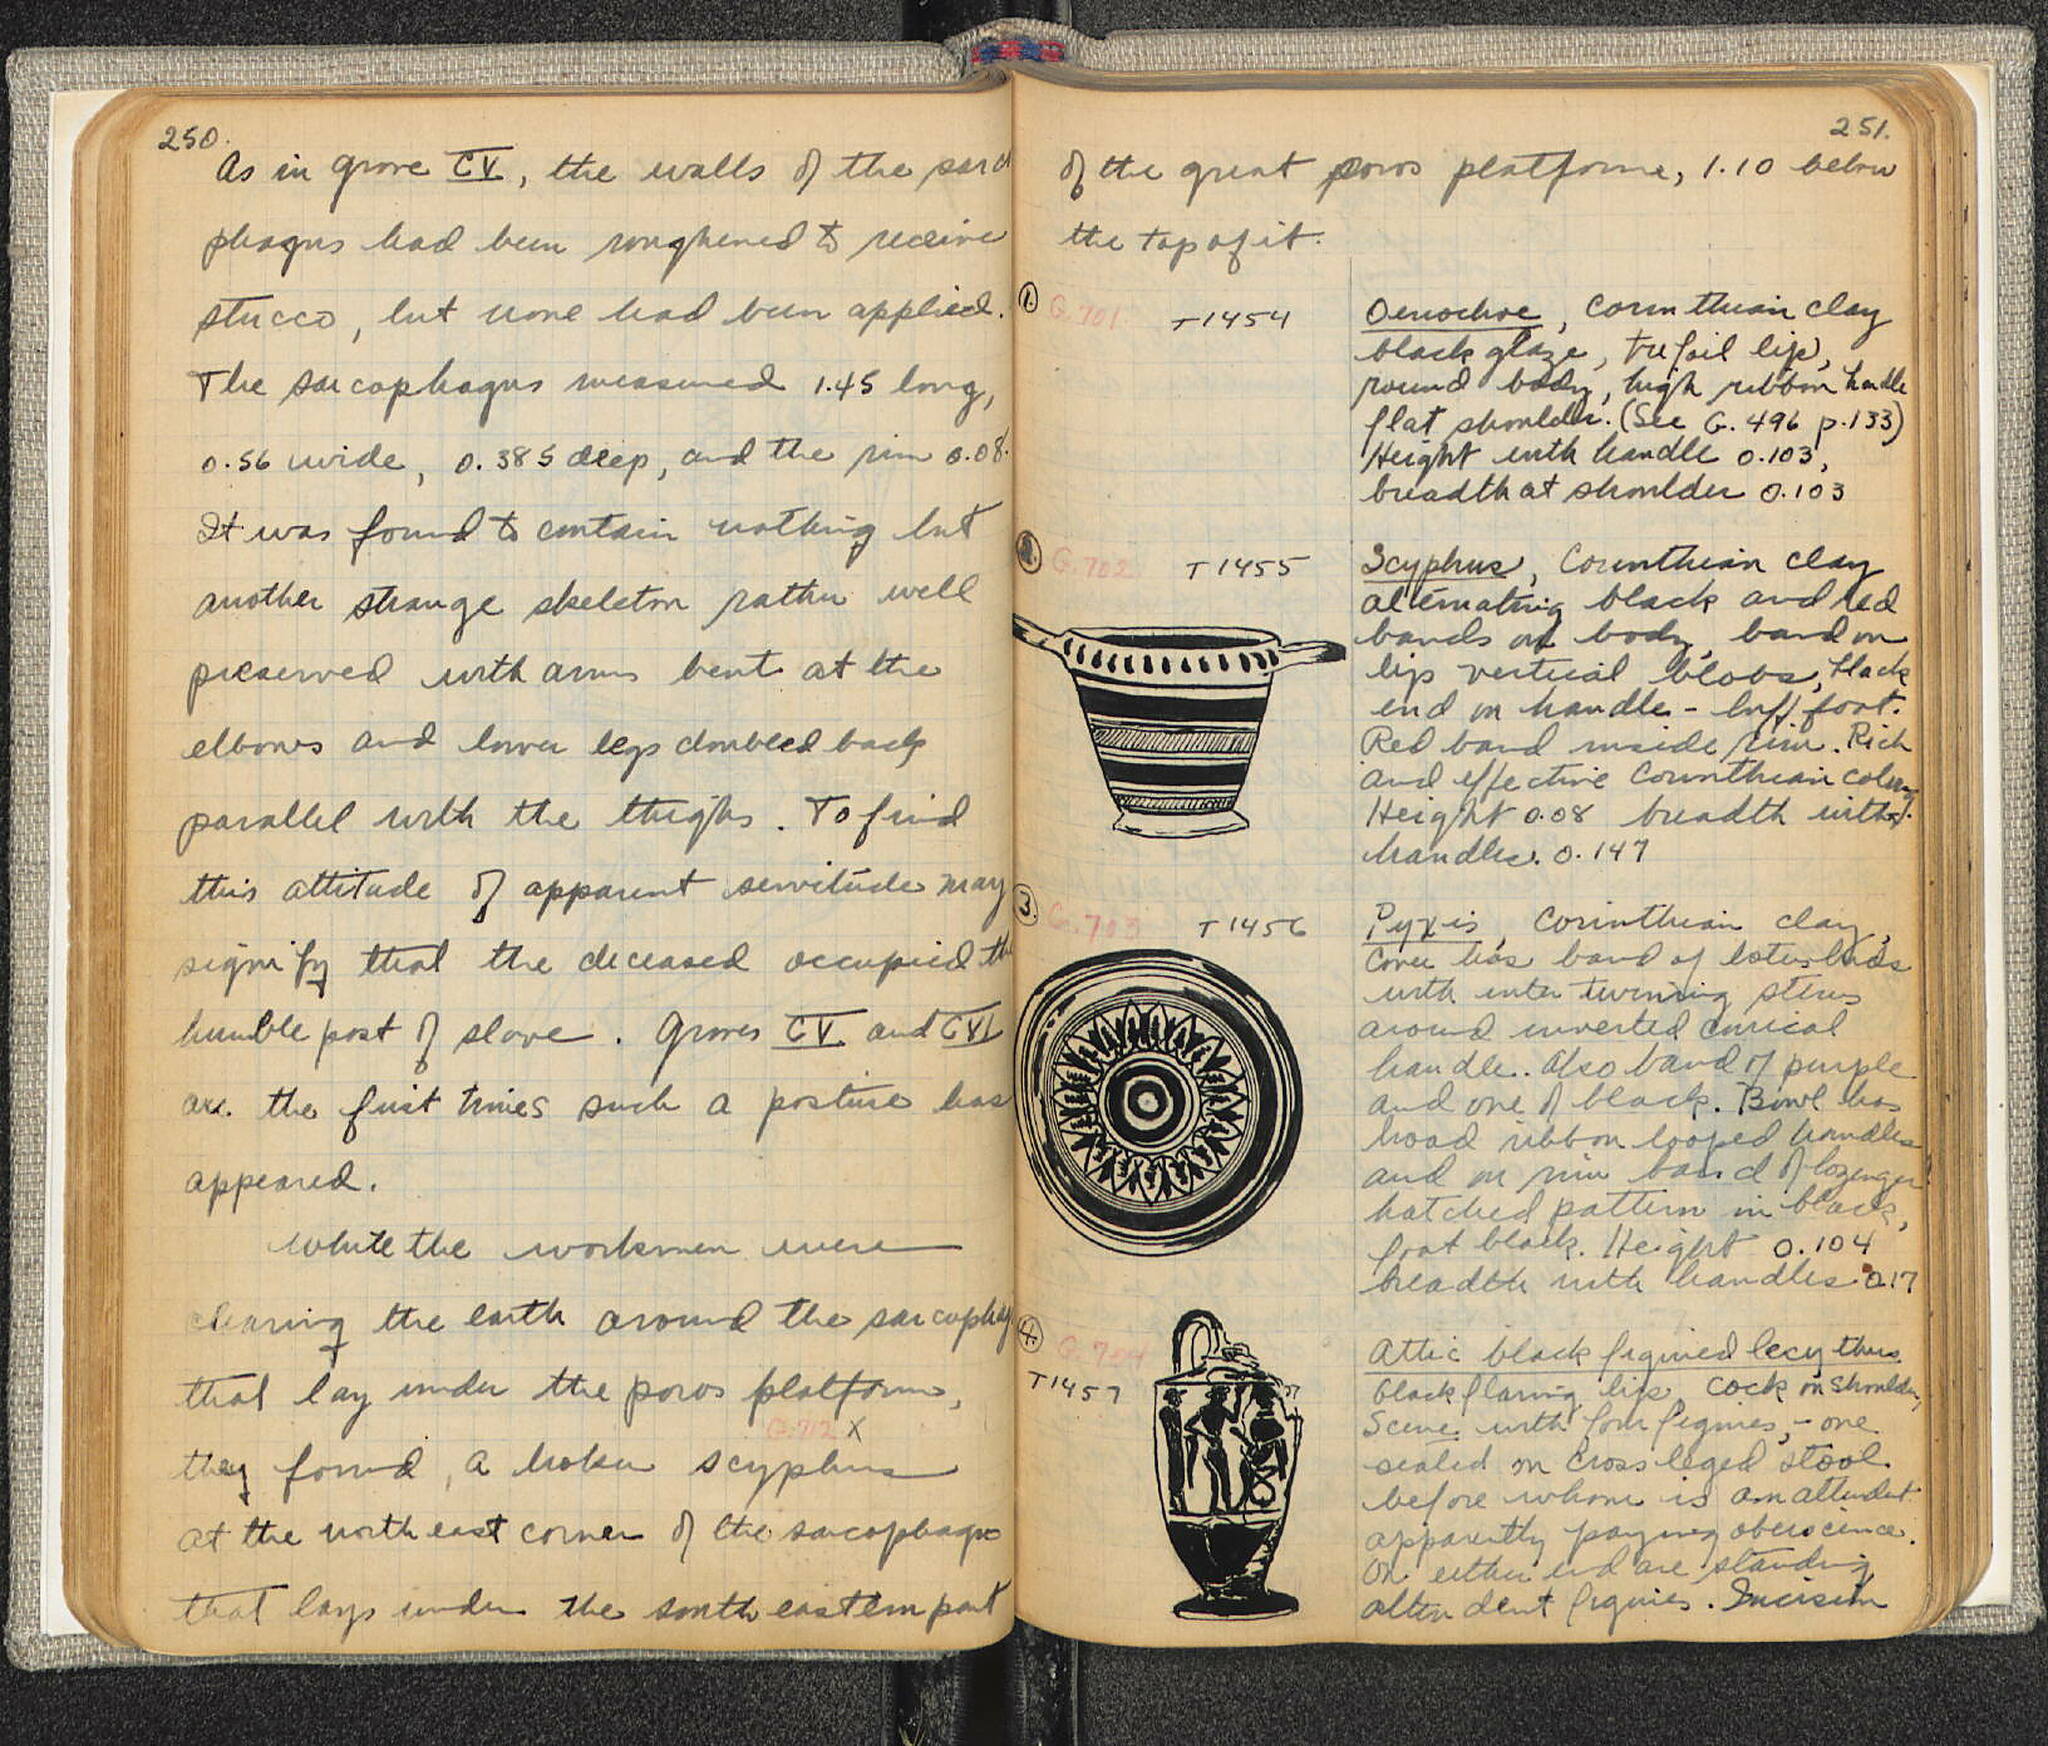 250.
As in grave CV, the walls of the sarco
phagus had been roughened to receive
stucco, but none had been applied.
The sarcophagus measured 1.45 long,
0.56 wide, 0.385 deep, and the rim 0.08.
It was found to contain nothing but
another strange skeleton rather well
preserved with arms bent at the
elbows and lower legs doubled back
parallel with the thighs. To find
this attitude of apparent servitude may
signify that the deceased occupied the
humble post of slave. Graves CV and CVI
are the first times such a posture has
appeared.
While the workmen were
clearing the earth around the sarcophag
that lay under the poros platform,
G.712 X
they found, a broken scyphus
at the north east corner of the sarcophagus
that lays under the south eastern part
251.
of the great poros platform, 1.10 below
the top of it.
1. G.701. T1454
Oenochoe, Corinthian clay
black glaze, trefoil lip,
round body, high ribbon handle
flat shoulder. (See G. 496 p.133)
Height with handle 0.103,
breadth at shoulder 0.103
2. G.702 T1455
Scyphus, Corinthian clay
alternating black and red
bands on body, band on
lip vertical blobs, black
end on handle - buff foot.
Red band inside rim. Rich
and effective Corinthian coloring
Height 0.08 breadth with
handles. 0.147
3. G.703 T1456
Pyxis, Corinthian clay,
Cover has band of lotus buds
with inter twinning stems
around inverted conical
handle. Also band of purple
and one of black. Bowl has
broad ribbon looped handles
and on rim band of lozenges
hatched pattern in black,
foot black. Height 0.104
breadth with handles 0.17
4. G.704
T1457
Attic black figured lecythus
black flaring lip, cock on shoulder,
Scene with four figures, - one
seated on cross leged stool
before whom is an attendant
apparently paying obeiscence.
On either end are standing
attendent figures. Incision